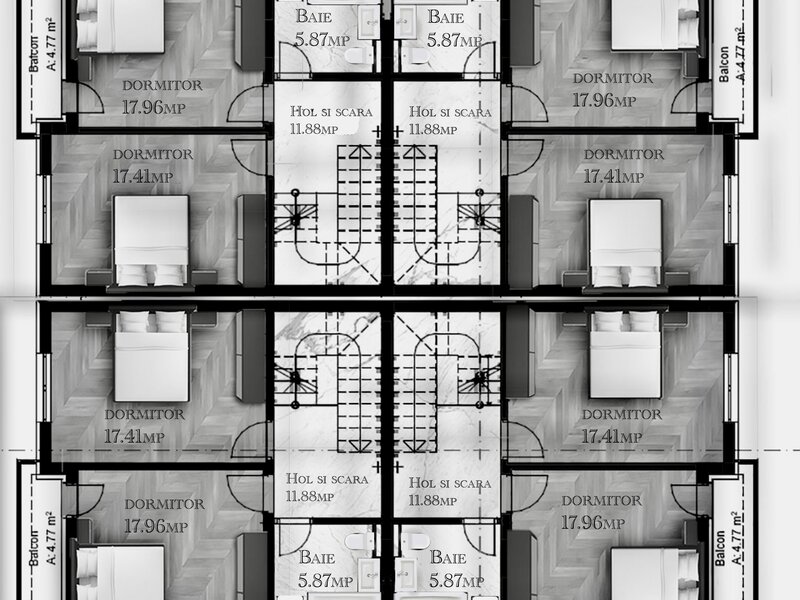 BAIE
5.87MP
BAIE
5.87MP
Balcon
A: 4.77 m²
DORMITOR
17.96MP
HOL SI SCARA
11.88MP
HOL SI SCARA
11.88MP
DORMITOR
17.96MP
Balcon
A: 4.77 m²
DORMITOR
17.41MP
DORMITOR
17.41MP
DORMITOR
17.41MP
DORMITOR
17.41MP
HOL SI SCARA
11.88MP
HOL SI SCARA
11.88MP
Balcon
A: 4.77 m²
DORMITOR
17.96MP
DORMITOR
17.96MP
Balcon
A: 4.77 m²
BAIE
5.87MP
BAIE
5.87MP